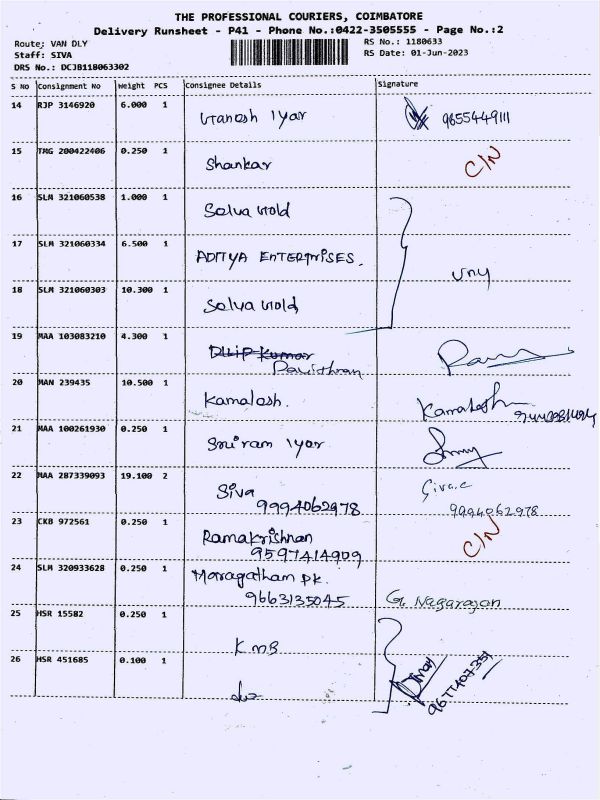 THE PROFESSIONAL COURIERS, COIMBATORE
Delivery Runsheet - P41 - Phone No.:0422-3505555 - Page No.:2
Route: VAN DLY
RS No.: 1180633
Staff: SIVA
RS Date: 01-Jun-2023
DRS No.: DCJB118063302
S No Consignment No Weight PCS Consignee Details Signature
14 RJP 3146920 6.000 1 Ganesh Iyar 9655449111
15 TMG 200422406 0.250 1 Shankar C/N
16 SLM 321060538 1.000 1 Selva Gold
17 SLM 321060334 6.500 1 ADITYA ENTERPRISES.
18 SLM 321060303 10.300 1 Selva Gold
19 MAA 103083210 4.300 1 Dilip Kumar
Pavithran
20 MAN 239435 10.500 1 Kamalesh. Kamalesh
21 MAA 100261930 0.250 1 Sriram Iyar
22 MAA 287339093 19.100 2 Siva Siva.c
9994062978 9994062978
23 CKB 972561 0.250 1 Ramakrishnan C/N
9597414909
24 SLM 320933628 0.250 1 Maragatham PK.
9663135045 G. Nagarajan
25 HSR 15582 0.250 1 KMB
26 HSR 451685 0.100 1